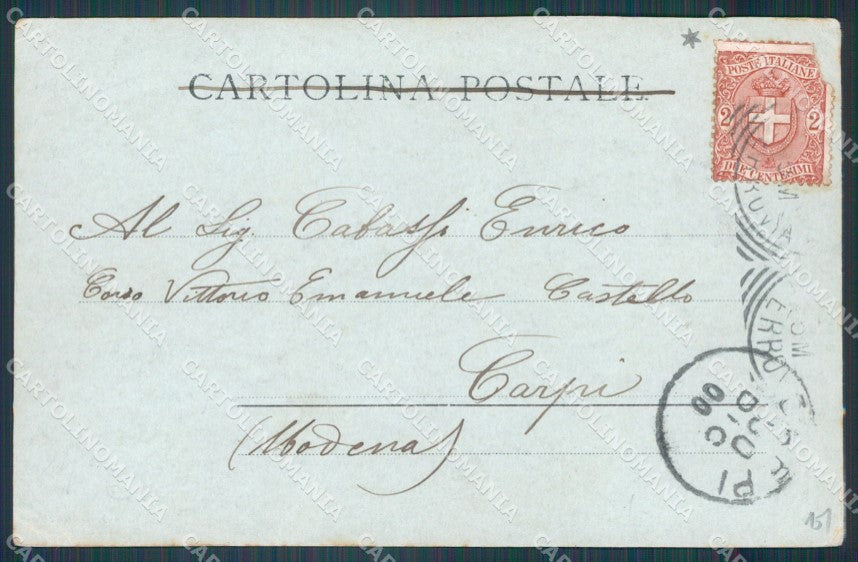 CARTOLINA POSTALE
POSTE ITALIANE
2 2
DUE CENTESIMI
Al Sig. Cabassi Enrico
Corso Vittorio Emanuele Castello
Carpi
(Modena)
PI
DIC
00
151
CARTOLINOMANIA